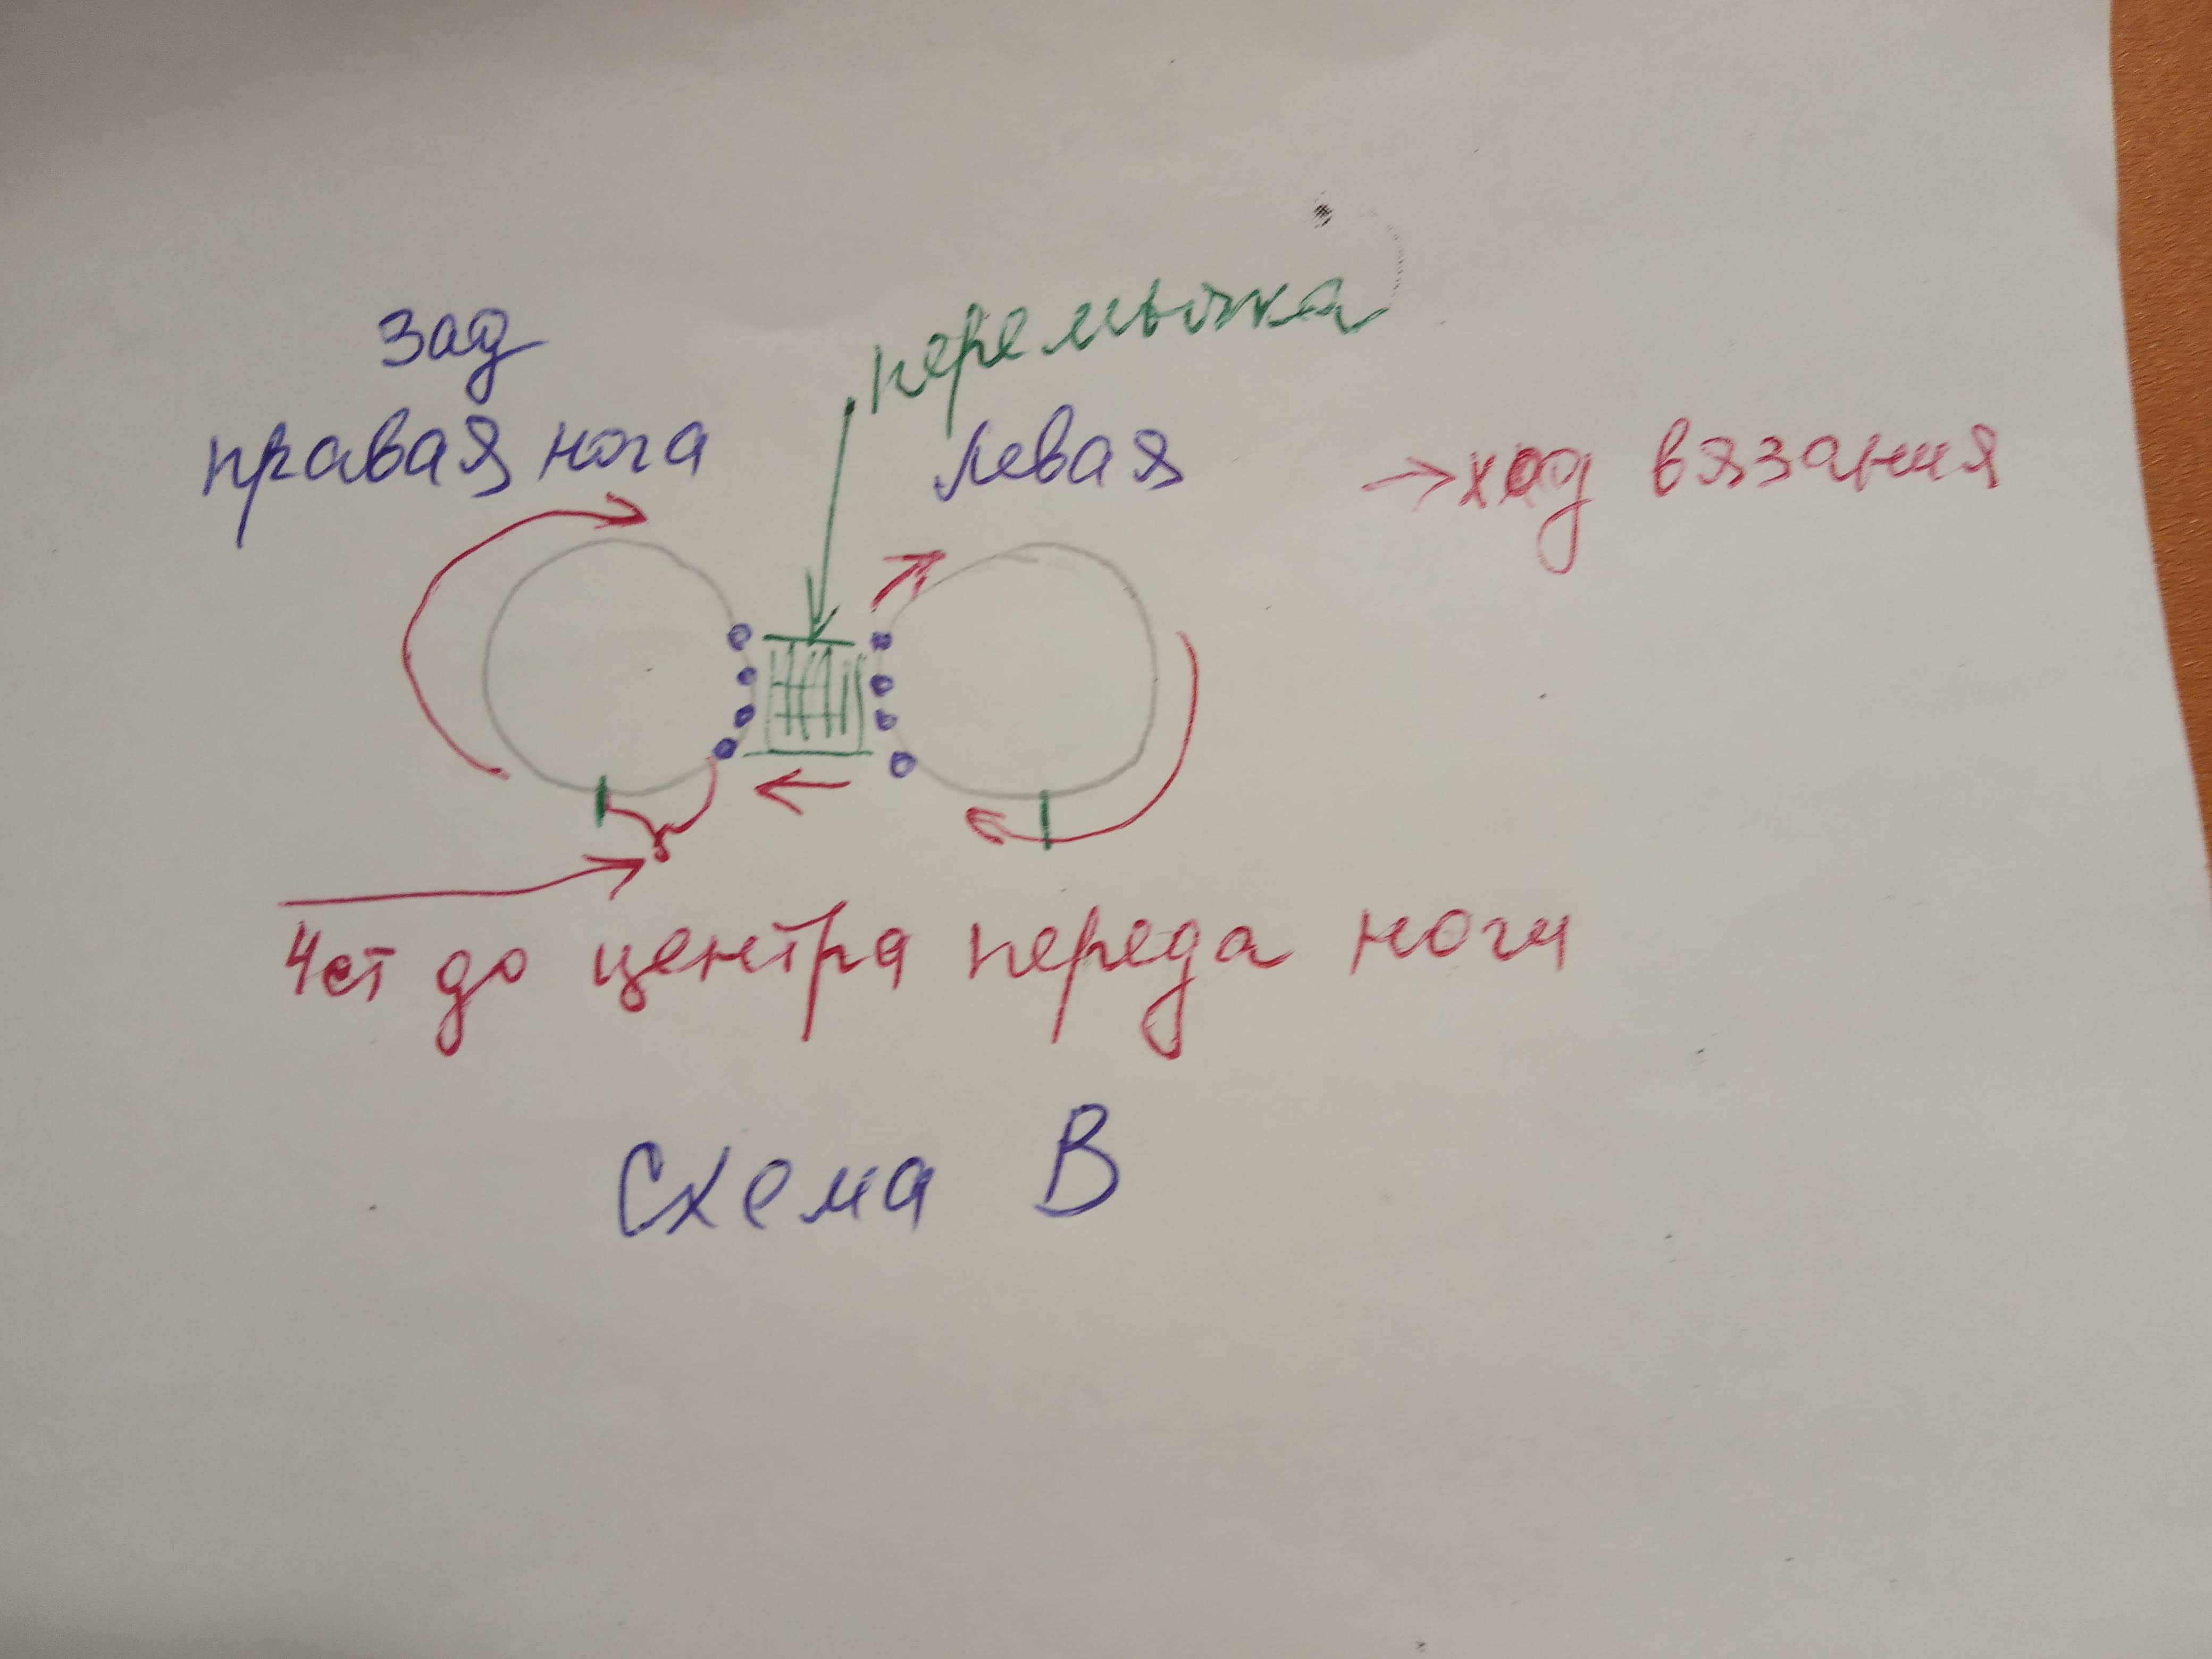 зад
перемычка
правая нога
левая
→ ход вязания
4ст до центра переда ноги
Схема В